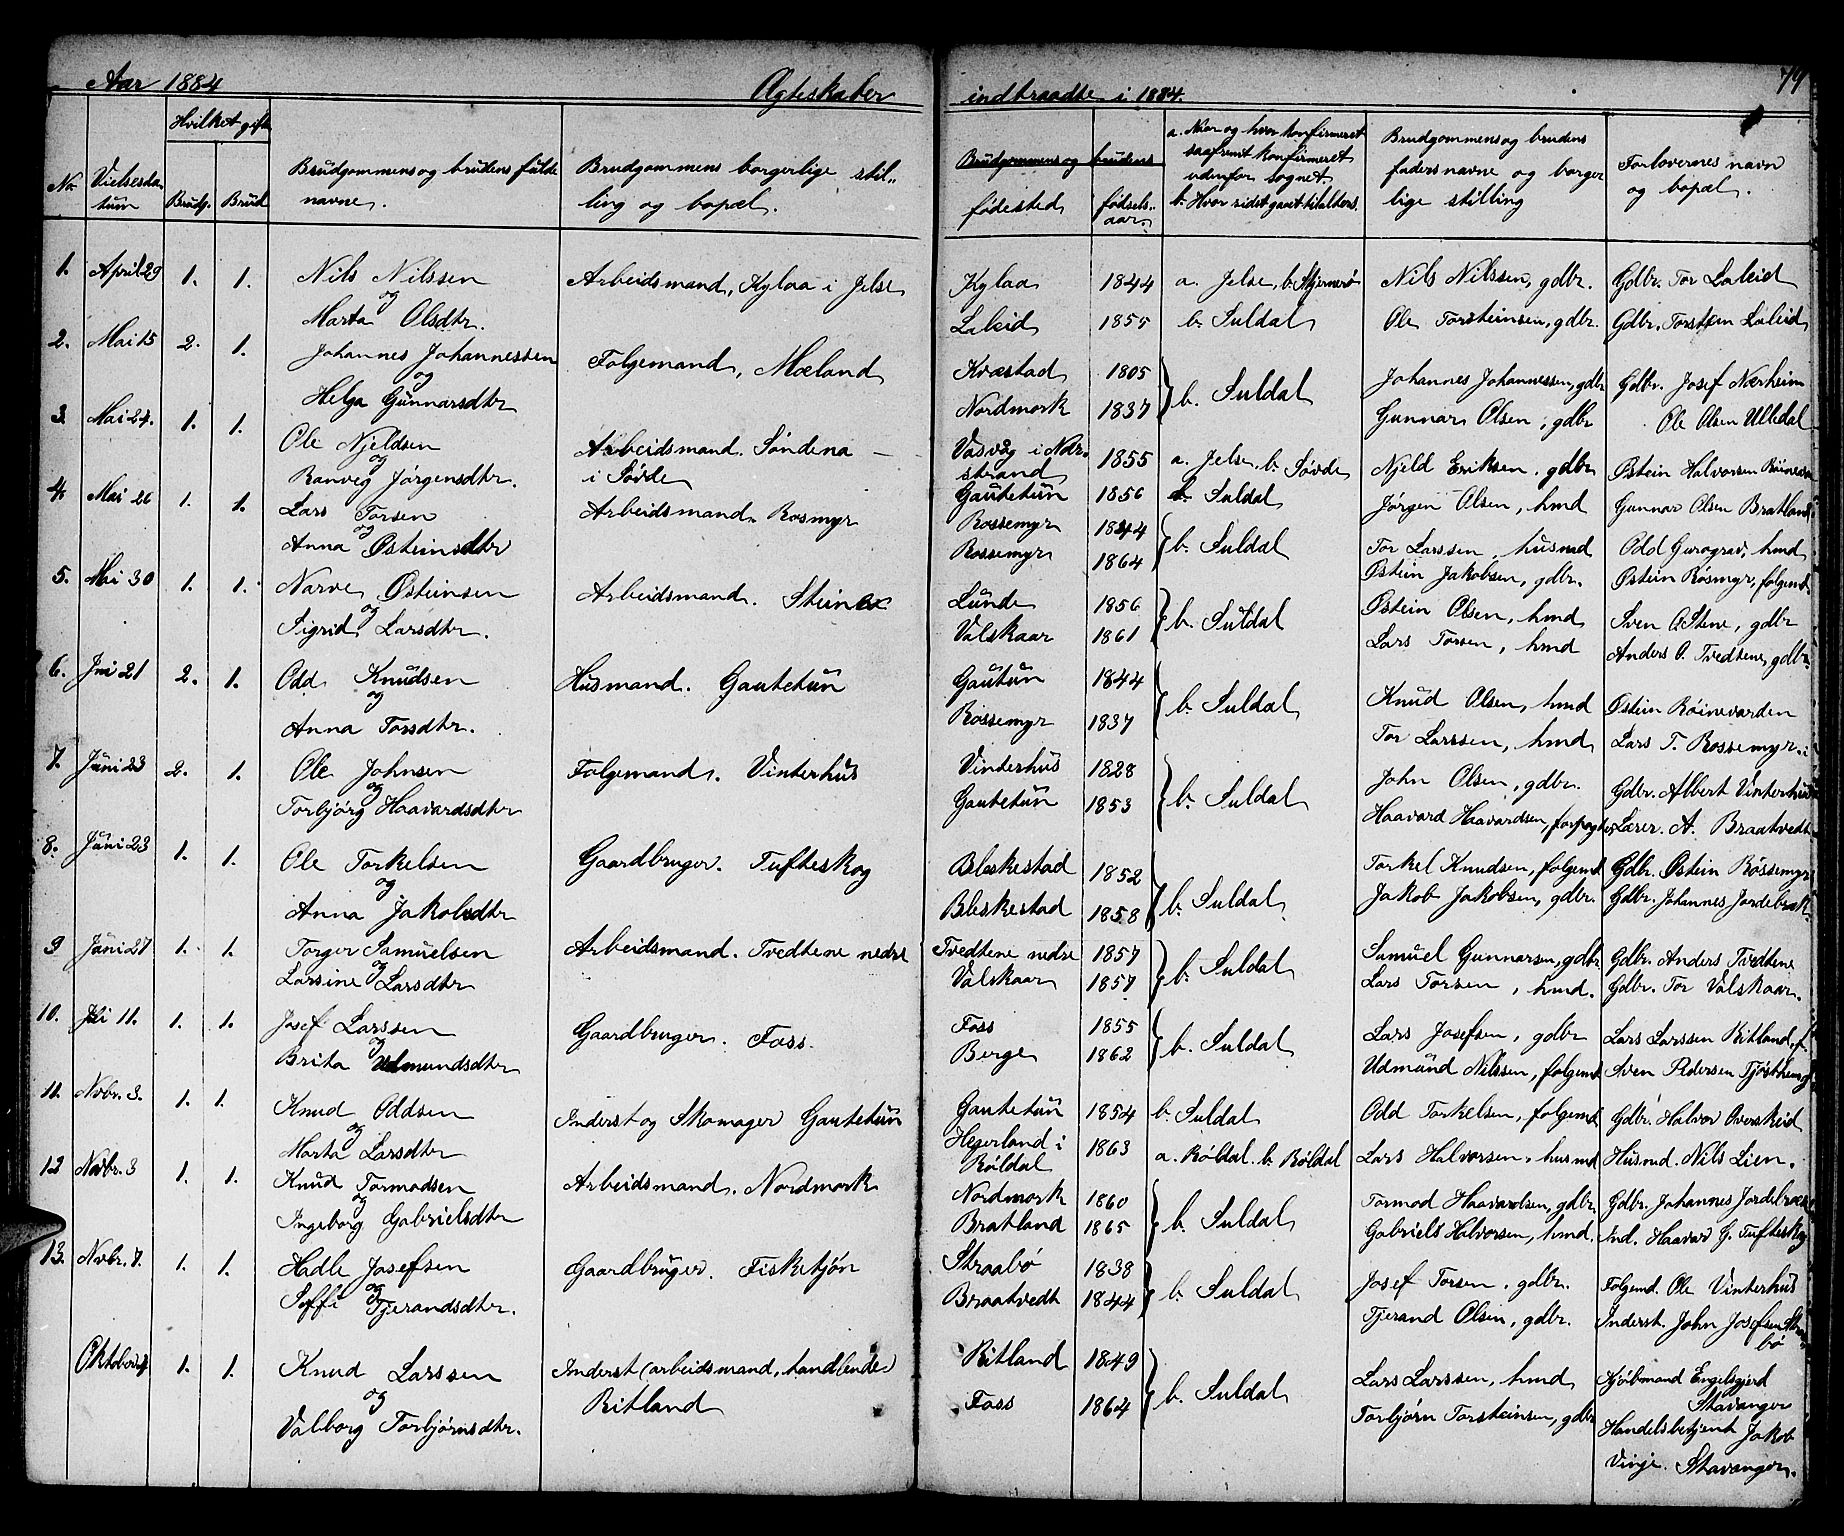 Aar 1884 Ægteskaber indtraadte i 1884. 79
No Vielsesda-tum
Hvilket gifte
Brudg. Brud
Brudgommens og brudens fulde navne.
Brudgommens borgerlige stil-ling og bopæl.
Brudgommens og brudens
fødested
fødsels-aar.
a. Naar og hvor konfirmeret saafremt konfirmeret udenfor sognet.
b. Hvor sidst gaaet til alters.
Brudgommens og brudens faders navne og borger lige stilling
Forlovernes navn og bopæl.
1. April 29 1. 1. Nils Nilssen Arbeidsmand, Kylaa i Jelse Kylaa 1844 a. Jelse, b. Hjermerø Nils Nilssen, gdbr. Gdbr. Tor Laleid
og
Marta Olsdtr. Laleid 1855 b. Suldal Ole Torsteinsen, gdbr. Gdbr. Torsten Laleid
2. Mai 15 2. 1. Johannes Johannessen Folgemand, Mæland Kvæstad 1805 } b. Suldal Johannes Johannessen, gdbr Gdbr. Josef Nærheim
og
Helga Gunnarsdtr Nordmork 1837 Gunnar Olsen, gdbr Ole Olsen Ulladal
3. Mai 24. 1. 1. Ole Njeldsen Arbeidsmand. Søndena i Søvde Vasvåg i Nær-strand 1855 a. Jelse. b. Søvde Njeld Eriksen. gdbr Østein Halvorsen
og
Ranveg Jørgensdtr. Gautetun 1856 b. Suldal Jørgen Olsen, hmd Gunnar Olsen Bratland
4. Mai 26 1. 1. Lars Torsen Arbeidsmand. Rosmyr Rossemyr 1844 } b. Suldal Tor Larssen, husmd Odd Gurograv, hmd
og
Anna Østeinsdtr Rossemyr 1864 Østein Jakobsen, gdbr. Østein Rosmyr, folgemd
5. Mai 30 1. 1. Narve Østeinsen Arbeidsmand. Steine Lunde 1856 } b. Suldal Østein Olsen, hmd Sven O Stene, gdbr
og
Sigrid Larsdtr. Valskaar 1861 Lars Torsen, hmd Anders O. Tvedtene, gdbr
6. Jni 21 2. 1. Odd Knudsen Husmand. Gautetun Gautun 1844 } b. Suldal Knud Olsen, hmd Østein Røinevarden
og
Anna Torsdtr. Rossemyr 1837 Tor Larssen, hmd Lars T. Rossemyr
7. Juni 23 2. 1. Ole Johnsen Folgemand. Vinterhus Vinterhus 1828 } b. Suldal John Olsen, gdbr. Gdbr. Albert Vinterhus
og
Torbjørg Haavardsdtr Gautetun 1853 Haavard Haavardsen, forpagter Lærer. A. Braatvedt
8. Juni 23 1. 1. Ole Torkelsen Gaardbruger. Tufteskog Bleskestad 1852 } b. Suldal Torkel Knudsen, folgemd Gdbr. Østein Røssemyr
og
Anna Jakobsdtr Bleskestad 1858 Jakob Jakobsen, gdbr. Gdbr. Johannes Jordebræk
9 Juni 27 1. 1. Torger Samuelsen Arbeidsmand. Tvedtene nedre Tvedtene nedre 1857 } b. Suldal Samuel Gunnarsen, gdbr Gdbr. Anders Tvedtene
og
Larsine Larsdtr Valskaar 1857 Lars Torsen, hmd. Gdbr. Tor Valskaar.
10. Juli 11. 1. 1. Josef Larssen Gaardbruger. Foss. Foss 1855 } b. Suldal Lars Josefsen, gdbr Lars Larssen Ritland, f.
og
Brita Udmundsdtr Berge 1862 Udmund Nilssen, folgemd Sven Pedersen Tjøstheim
11. Novbr. 3. 1. 1. Knud Oddsen Inderst og Skomager Gautetun Gautetun 1854 b. Suldal Odd Torkelsen, folgemd Gdbr. Halvor Overskeid
og
Marta Larsdtr Hegerland i Røldal 1863 a. Røldal. b. Røldal Lars Halvorsen, husmd Husmd. Nils Lien.
12 Novbr. 3 1. 1. Knud Tormodsen Arbeidsmand. Nordmork Nordmork 1860 } b. Suldal Tormod Haavardsen, gdbr Gdbr. Johannes Jordebræk
og
Ingeborg Gabrielsdtr Bratland 1865 Gabriels Halvorsen, hmd. Ind. Haavar G. Tufteskog
13. Novbr. 7. 1. 1. Hadle Josefsen Gaardbruger. Fisketjøn Straabø 1838 } b. Suldal Josef Torsen, gdbr. Folgemd. Ole Vinterhus
og
Soffi Tjerandsdtr. Braatvedt 1844 Tjerand Olsen, gdbr. Inderst. John Josefsen Straabø
Oktober 1. 1. Knud Larssen Inderst (arbeidsmand, handlende) Ritland Ritland 1849 } b. Suldal Lars Larssen, hmd Kjøbmand Engelsgjerd Stavanger
og
Valborg Torbjørnsdtr. Foss 1864 Torbjørn Torsteinsen, gdbr Handelsbetjent Jakob Vinje. Stavanger.